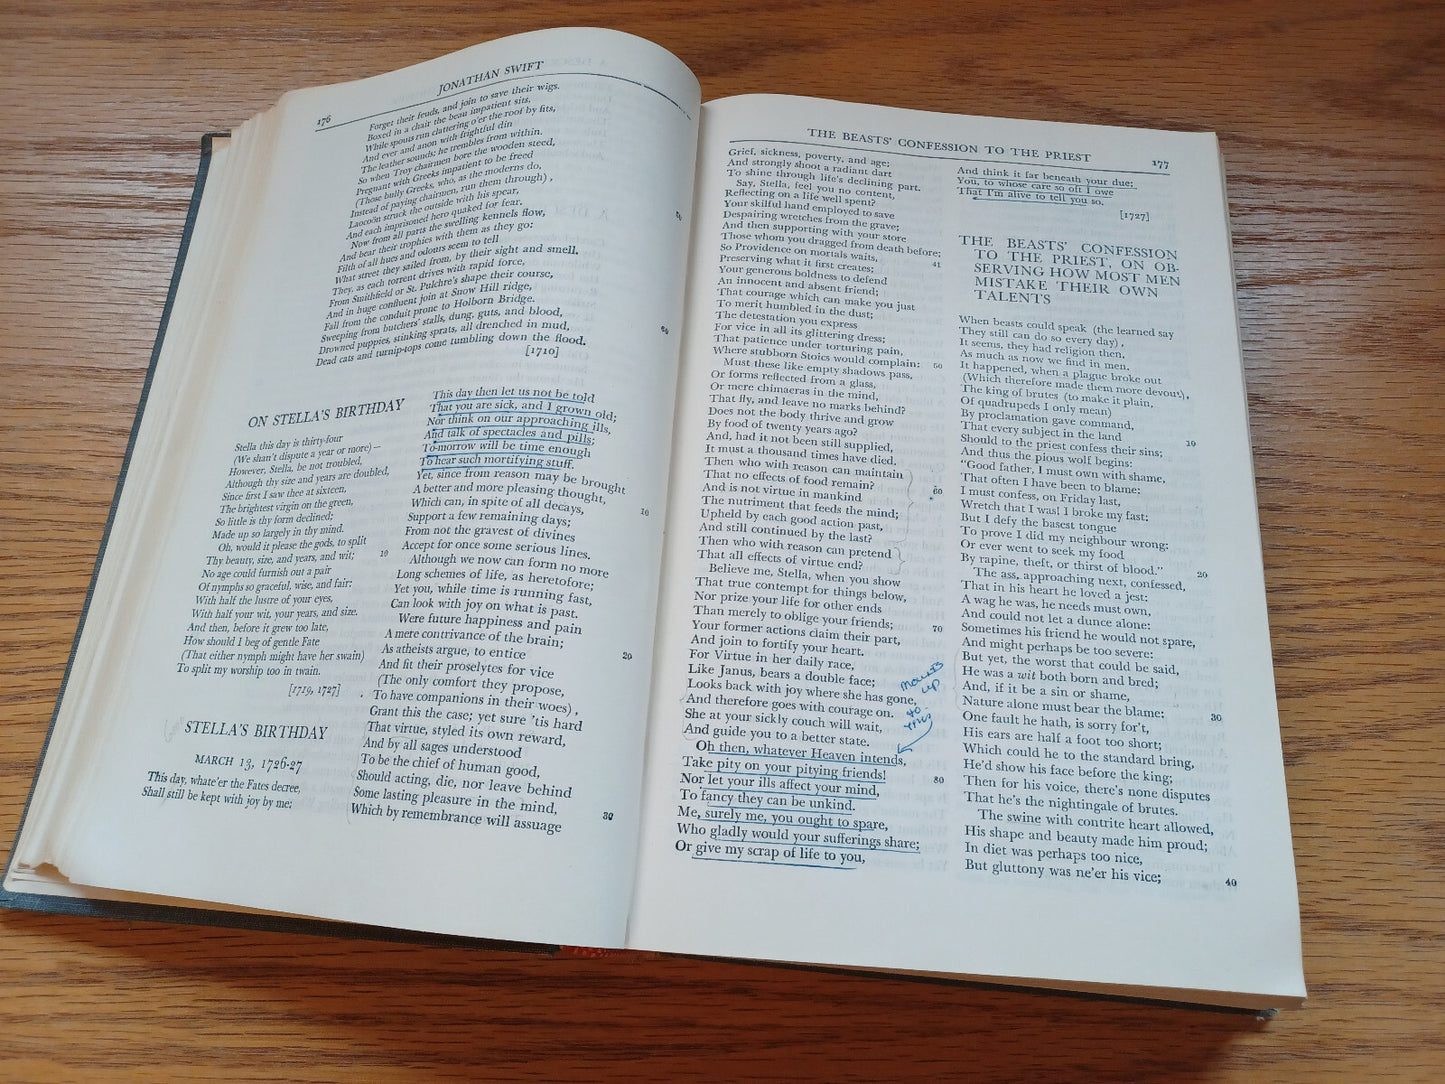 176
JONATHAN SWIFT
Forget their feuds, and join to save their wigs.
Boxed in a chair the beau impatient sits,
While spouts run clattering o'er the roof by fits,
And ever and anon with frightful din
The leather sounds; he trembles from within.
So when Troy chairmen bore the wooden steed,
Pregnant with Greeks impatient to be freed
(Those bully Greeks, who, as the moderns do,
Instead of paying chairmen, run them through),
Laocoön struck the outside with his spear,
And each imprisoned hero quaked for fear.
Now from all parts the swelling kennels flow,
And bear their trophies with them as they go:
Filth of all hues and odours seem to tell
What street they sailed from, by their sight and smell.
They, as each torrent drives with rapid force,
From Smithfield or St. Pulchre's shape their course,
And in huge confluent join at Snow Hill ridge,
Fall from the conduit prone to Holborn Bridge.
Sweeping from butchers' stalls, dung, guts, and blood,
Drowned puppies, stinking sprats, all drenched in mud,
60
Dead cats and turnip-tops come tumbling down the flood.
[1710]
ON STELLA'S BIRTHDAY
Stella this day is thirty-four
(We shan't dispute a year or more)—
However, Stella, be not troubled,
Although thy size and years are doubled,
Since first I saw thee at sixteen,
The brightest virgin on the green,
So little is thy form declined;
Made up so largely in thy mind.
Oh, would it please the gods, to split
Thy beauty, size, and years, and wit; 10
No age could furnish out a pair
Of nymphs so graceful, wise, and fair:
With half the lustre of your eyes,
With half your wit, your years, and size.
And then, before it grew too late,
How should I beg of gentle Fate
(That either nymph might have her swain)
To split my worship too in twain.
[1719, 1727]
STELLA'S BIRTHDAY
MARCH 13, 1726-27
This day, whate'er the Fates decree,
Shall still be kept with joy by me:
This day then let us not be told
That you are sick, and I grown old;
Nor think on our approaching ills,
And talk of spectacles and pills;
To-morrow will be time enough
To hear such mortifying stuff.
Yet, since from reason may be brought
A better and more pleasing thought,
Which can, in spite of all decays, 10
Support a few remaining days;
From not the gravest of divines
Accept for once some serious lines.
Although we now can form no more
Long schemes of life, as heretofore;
Yet you, while time is running fast,
Can look with joy on what is past.
Were future happiness and pain
A mere contrivance of the brain;
As atheists argue, to entice 20
And fit their proselytes for vice
(The only comfort they propose,
To have companions in their woes),
Grant this the case; yet sure 'tis hard
That virtue, styled its own reward,
And by all sages understood
To be the chief of human good,
Should acting, die, nor leave behind
Some lasting pleasure in the mind,
Which by remembrance will assuage 30
THE BEASTS' CONFESSION TO THE PRIEST
177
Grief, sickness, poverty, and age;
And strongly shoot a radiant dart
To shine through life's declining part.
Say, Stella, feel you no content,
Reflecting on a life well spent?
Your skilful hand employed to save
Despairing wretches from the grave;
And then supporting with your store
Those whom you dragged from death before;
So Providence on mortals waits, 41
Preserving what it first creates;
Your generous boldness to defend
An innocent and absent friend;
That courage which can make you just
To merit humbled in the dust;
The detestation you express
For vice in all its glittering dress;
That patience under torturing pain,
Where stubborn Stoics would complain: 50
Must these like empty shadows pass,
Or forms reflected from a glass,
Or mere chimaeras in the mind,
That fly, and leave no marks behind?
Does not the body thrive and grow
By food of twenty years ago?
And, had it not been still supplied,
It must a thousand times have died.
Then who with reason can maintain
That no effects of food remain?
And is not virtue in mankind 60
The nutriment that feeds the mind;
Upheld by each good action past,
And still continued by the last?
Then who with reason can pretend
That all effects of virtue end?
Believe me, Stella, when you show
That true contempt for things below,
Nor prize your life for other ends
Than merely to oblige your friends;
Your former actions claim their part, 70
And join to fortify your heart.
For Virtue in her daily race,
Like Janus, bears a double face;
Looks back with joy where she has gone,
And therefore goes with courage on.
She at your sickly couch will wait,
And guide you to a better state.
moves
up
to
this
Oh then, whatever Heaven intends,
Take pity on your pitying friends!
Nor let your ills affect your mind, 80
To fancy they can be unkind.
Me, surely me, you ought to spare,
Who gladly would your sufferings share;
Or give my scrap of life to you,
And think it far beneath your due;
You, to whose care so oft I owe
That I'm alive to tell you so.
[1727]
THE BEASTS' CONFESSION
TO THE PRIEST, ON OB-
SERVING HOW MOST MEN
MISTAKE THEIR OWN
TALENTS
When beasts could speak (the learned say
They still can do so every day),
It seems, they had religion then,
As much as now we find in men.
It happened, when a plague broke out
(Which therefore made them more devout),
The king of brutes (to make it plain,
Of quadrupeds I only mean)
By proclamation gave command,
That every subject in the land 10
Should to the priest confess their sins;
And thus the pious wolf begins:
"Good father, I must own with shame,
That often I have been to blame:
I must confess, on Friday last,
Wretch that I was! I broke my fast:
But I defy the basest tongue
To prove I did my neighbour wrong:
Or ever went to seek my food
By rapine, theft, or thirst of blood." 20
The ass, approaching next, confessed,
That in his heart he loved a jest:
A wag he was, he needs must own,
And could not let a dunce alone:
Sometimes his friend he would not spare,
And might perhaps be too severe:
But yet, the worst that could be said,
He was a wit both born and bred;
And, if it be a sin or shame,
Nature alone must bear the blame: 30
One fault he hath, is sorry for't,
His ears are half a foot too short;
Which could he to the standard bring,
He'd show his face before the king;
Then for his voice, there's none disputes
That he's the nightingale of brutes.
The swine with contrite heart allowed,
His shape and beauty made him proud;
In diet was perhaps too nice,
But gluttony was ne'er his vice; 40